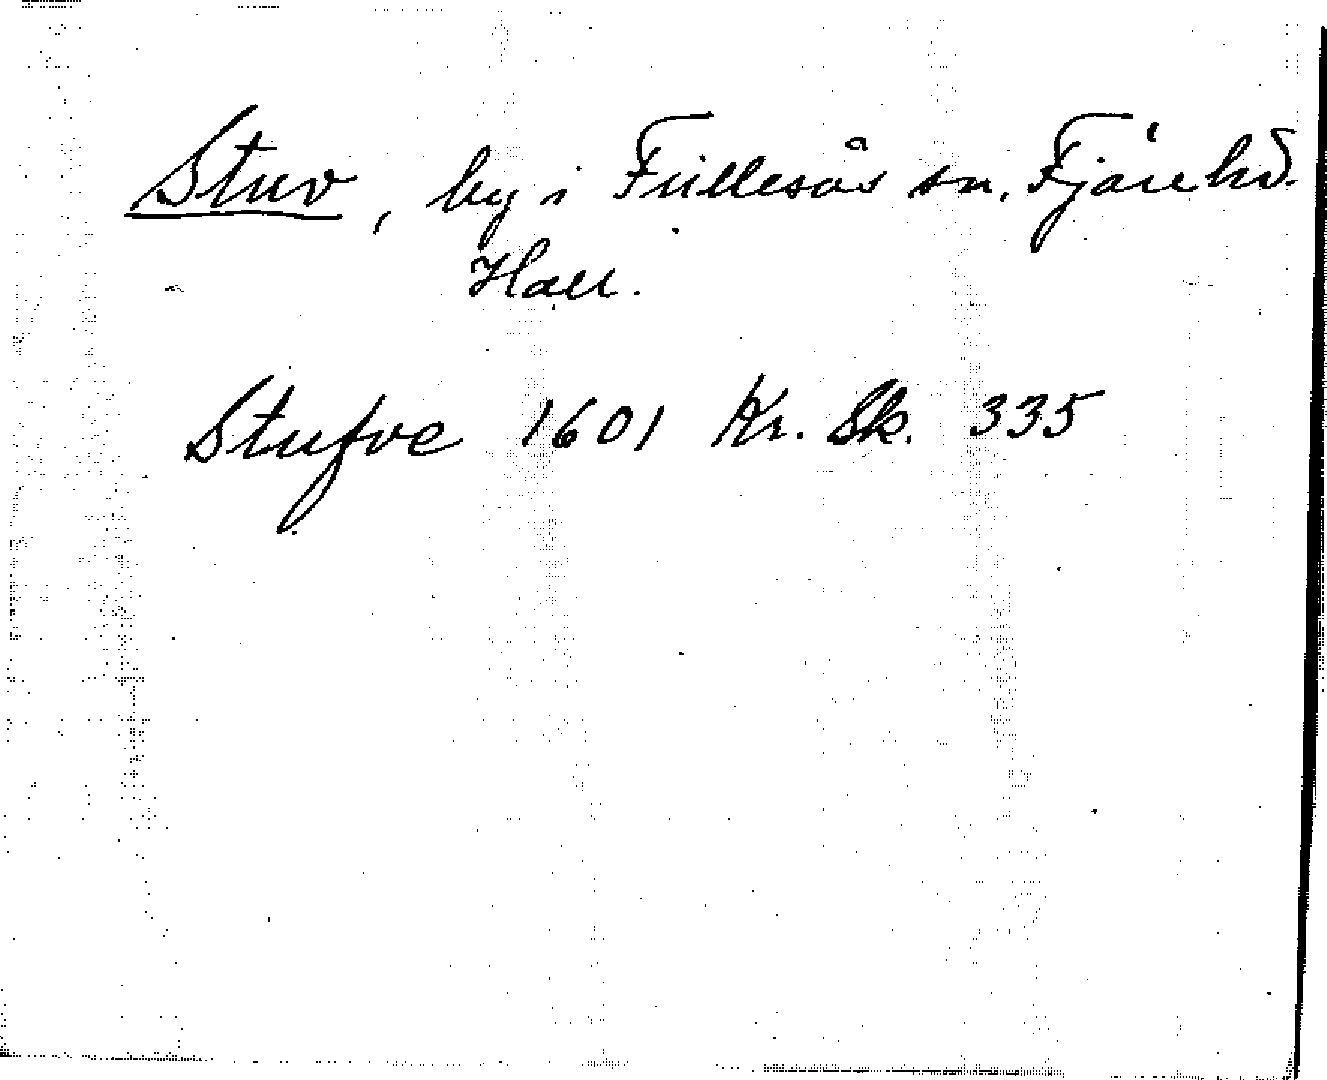 Stuv, by i Frillesås sn. Fjäre hd.
Hall.
Stufve 1601 Kr. Sk. 335